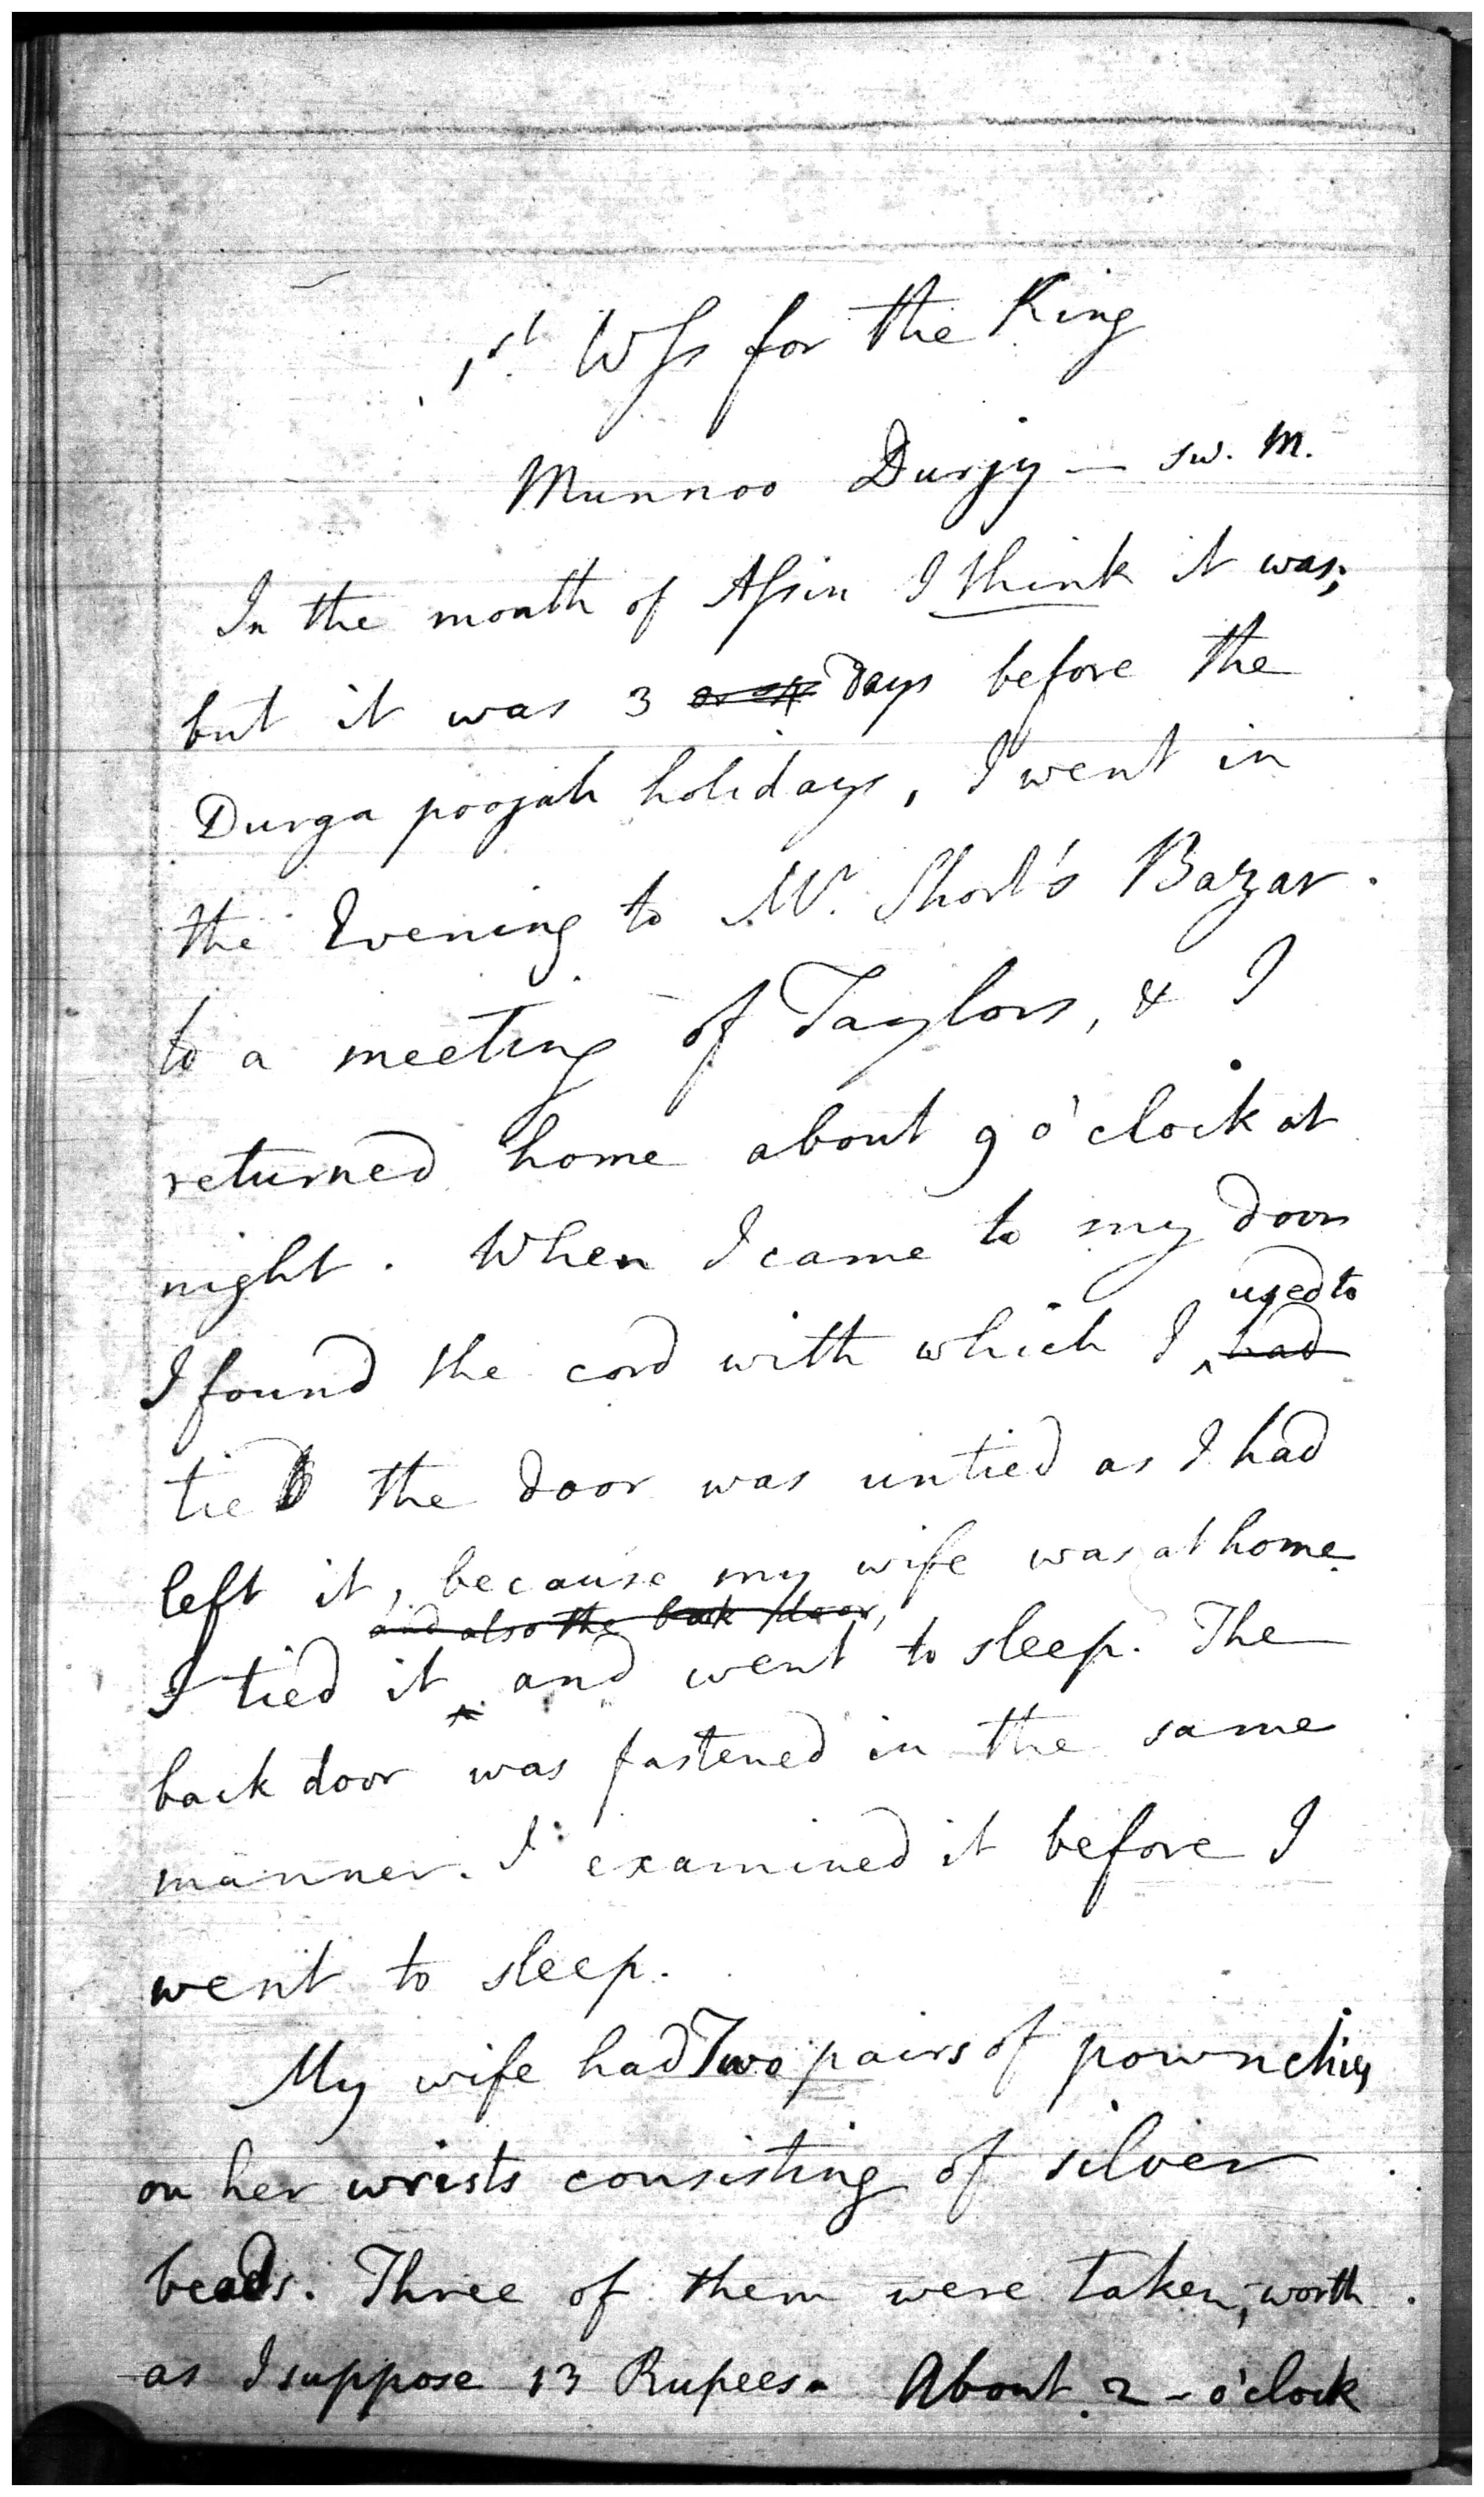 1st. Wss for the King
Munnoo Durjy — sw. M.
In the month of Assin I think it was;
but it was 3 or 4 days before the
Durga poojah holidays, I went in
the Evening to Mr. Short's Bazar.
to a meeting of Taylors, & I
returned home about 9 o'clock at
night. When I came to my door
used to
I found the cord with which I ^ had
tied the door was untied as I had
left it, because my wife was at home.
and also the back door,
I tied it ^ and went to sleep. The
back door was fastened in the same
manner. I examined it before I
went to sleep.
My wife had Two pairs of pownchies
on her wrists consisting of silver
beads. Three of them were taken, worth
as I suppose 13 Rupees. About 2 - o'clock